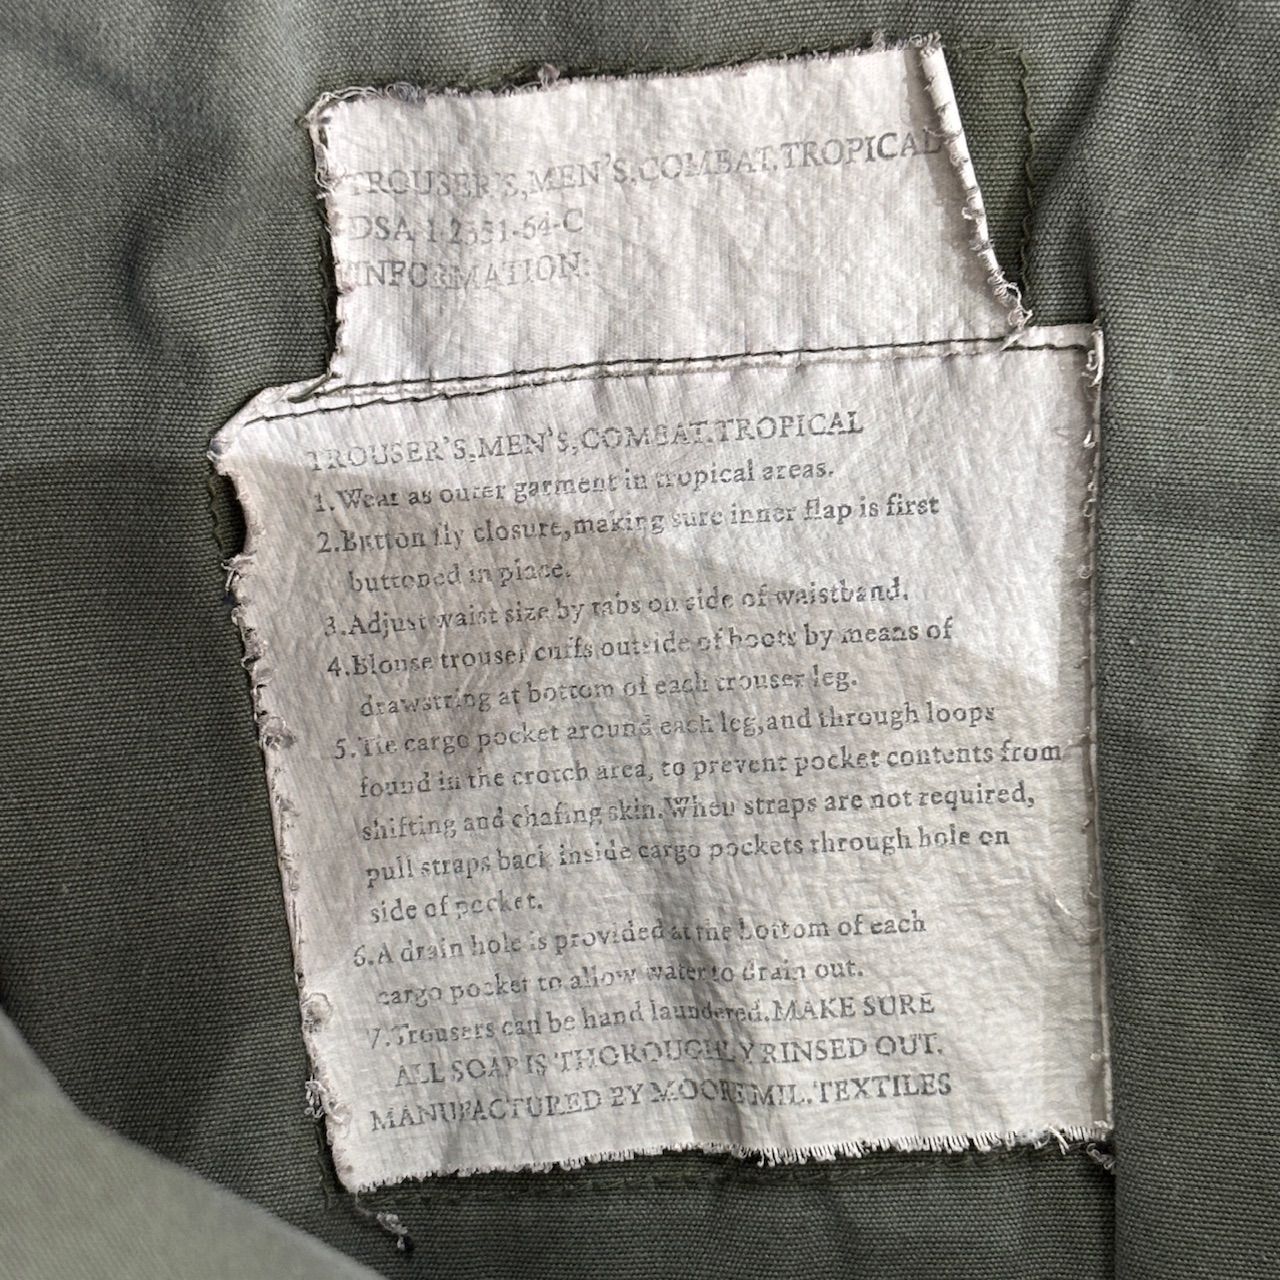 TROUSER'S,MEN'S,COMBAT,TROPICAL
DSA 1 2331-64-C
INFORMATION:
TROUSER'S,MEN'S,COMBAT,TROPICAL
1.Wear as outer garment in tropical areas.
2.Button fly closure,making sure inner flap is first
buttoned in place.
3.Adjust waist size by tabs on side of waistband.
4.Blouse trouser cuffs outside of boots by means of
drawstring at bottom of each trouser leg.
5.Tie cargo pocket around each leg,and through loops
found in the crotch area, to prevent pocket contents from
shifting and chafing skin.When straps are not required,
pull straps back inside cargo pockets through hole on
side of pocket.
6.A drain hole is provided at the bottom of each
cargo pocket to allow water to drain out.
7.Trousers can be hand laundered.MAKE SURE
ALL SOAP IS THOROUGHLY RINSED OUT.
MANUFACTURED BY MOORE MIL.TEXTILES